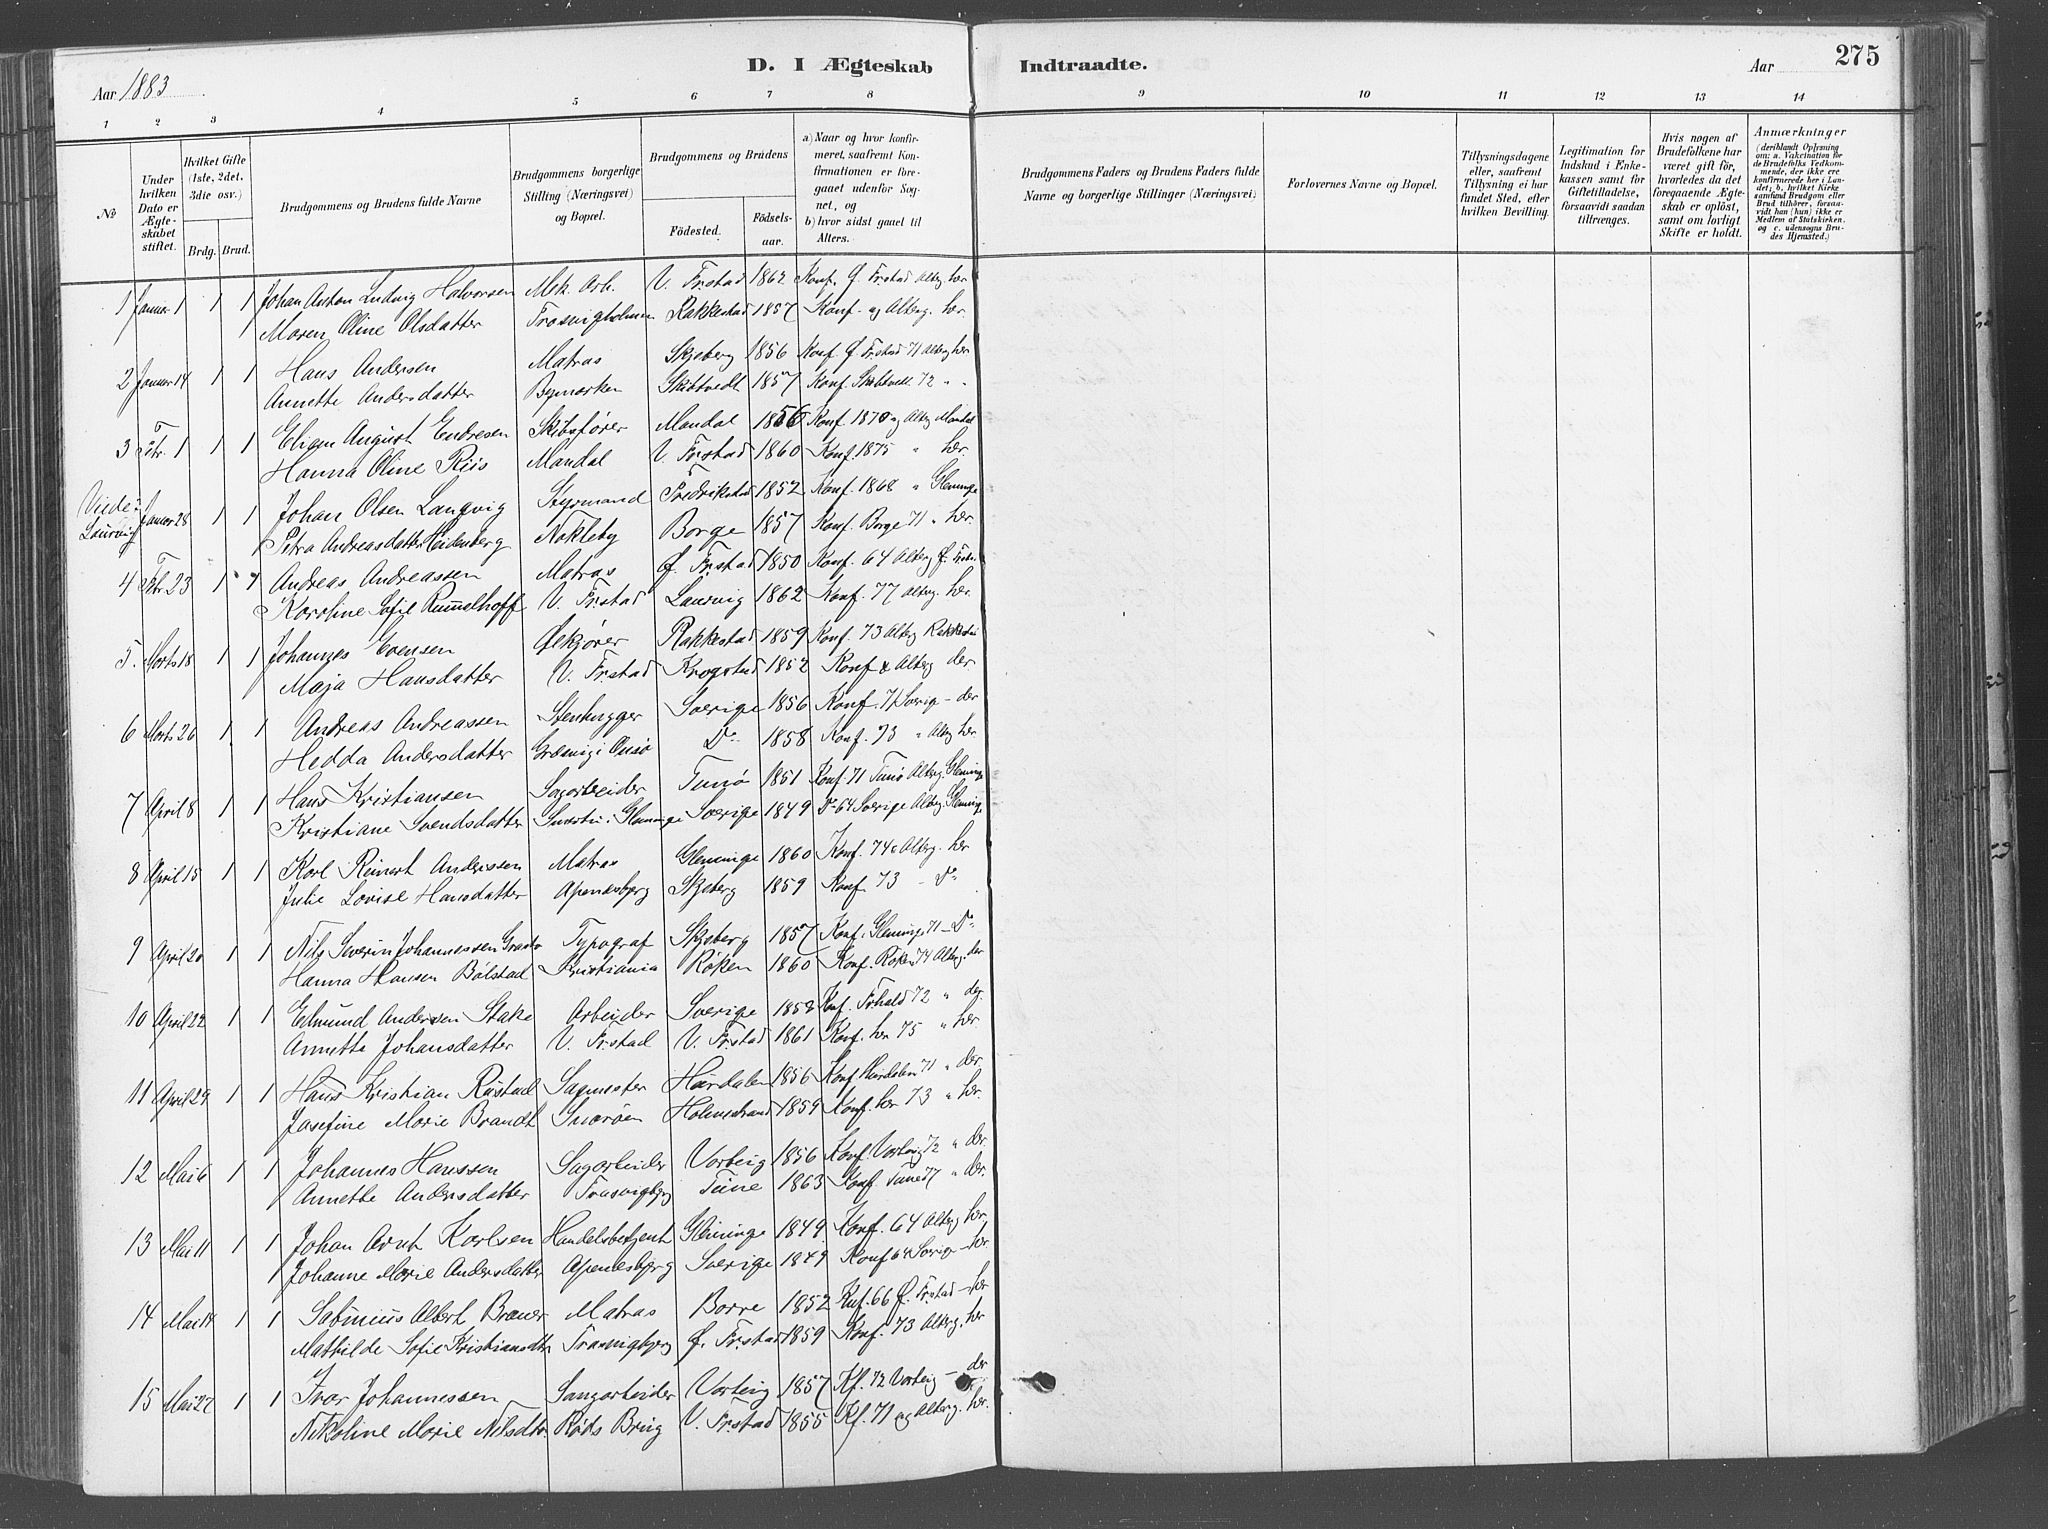 D. I Ægteskab Indtraadte.
275
Aar 1883
Aar
1 2 3 4 5 6 7 8 9 10 11 12 13 14
No
Under hvilken Dato er Ægteskabet stiftet.
Hvilket Gifte (1ste, 2det, 3die osv.)
Brdg. Brud.
Brudgommens og Brudens fulde Navne
Brudgommens borgerlige Stilling (Næringsvei) og Bopæl.
Brudgommens og Brudens
Fødested. Fødselsaar.
a) Naar og hvor konfirmeret, saafremt Konfirmationen er foregaaet udenfor Sognet, og
b) hvor sidst gaaet til Alters.
Brudgommens Faders og Brudens Faders fulde Navne og borgerlige Stillinger (Næringsvei)
Forlovernes Navne og Bopæl.
Tillysningsdagene eller, saafremt Tillysning ei har fundet Sted, efter hvilken Bevilling.
Legitimation for Indskud i Enkekassen samt for Giftetilladelse, forsaavidt saadan tiltrænges.
Hvis nogen af Brudefolkene har været gift før, hvorledes da det foregaaende Ægteskab er opløst, samt om lovligt Skifte er holdt.
Anmærkninger (deriblandt Oplysning om: a. Vakcination for de Brudefolks Vedkommende, der ikke ere konfirmerede her i Landet; b. hvilket Kirkesamfund Brudgom eller Brud tilhører, forsaavidt han (hun) ikke er Medlem af Statskirken, og c. udensogns Brudes Hjemsted.)
1 Januar 1 1 1 Johan Anton Ludvig Halvorsen Mek. Arb. V. Fr.stad 1862 Konf. Ø. Fr.stad Alterg. her
Maren Oline Olsdatter Trosvigholmen Rakkestad 1857 Konf. og Alterg. her
2 Januar 14 1 1 Hans Andersen Matros Skjeberg 1856 Konf. Ø. Fr.stad 71 Alterg her
Annette Andersdatter Bymarken Skibtvedt 1857 Konf. Skibtvedt 72 " "
3 Febr. 1 1 1 August Endresen Skibsfører Mandal 1856 Konf. 1870 og Alterg Mandal
Hanna Oline Riis Mandal V. Fr.stad 1860 Konf. 1875 " her.
Viede i Laurvig Januar 28 1 1 Johan Olsen Langvig Styrmand Fredrikstad 1852 Konf. 1868 " Glemminge
Petra Andreasdatter Heidenberg Nøkleby Borge 1857 Konf. Borge 71 " her.
4 Febr 23 1 1 Andreas Andreassen Matros Ø. Fr.stad 1850 Konf. 64 Alterg Ø. Fr.stad
Karoline Sofie Rummelhoff V. Fr.stad Laurvig 1862 Konf. 77 Alterg. her.
5. Marts 18 1 1 Johannes Evensen Rakkestad 1859 Konf. 73 Alterg Rakkestad
Maja Hansdatter V. Fr.stad Krogstad 1852 Konf & Alterg der
6 Marts 26 1 1 Andreas Andreassen Stenhugger Sverige 1856 Konf. 71 Sverig - der
Hedda Andersdatter Græsvig i Onsø Do 1858 Konf. 73 " Alterg her
7 April 8 1 1 Hans Kristiansen Sagarbeider Tunø 1851 Konf. 71 Tunø Alterg. Glemminge
Kristiane Svendsdatter Glemminge Sverige 1849 Do 64 Sverige Alterg. Glemminge
8 April 15 1 1 Karl Reinert Andersen Matros Glemminge 1860 Konf. 74 Alterg. her
Julie Lovise Hansdatter Apenesbjerg Skjeberg 1859 Konf. 73 - Do
9 April 20 1 1 Nils Severin Johannessen Typograf Skjeberg 1857 Konf. Glemminge 71 - Do
Hanna Hansen Bølstad Kristiania Røken 1860 Konf. Røken 74 Alterg. der
10 April 22 1 1 Edmund Andersen Stake Arbeider Sverige 1852 Konf. Fr.hald 72 " der.
Annette Johansdatter V. Fr.stad V. Fr.stad 1861 Konf. her 75 " her.
11 April 29 1 1 Hans Kristian Rustad Sagmester Hurdalen 1856 Konf Hurdalen 71 " der
Josefine Marie Brandt Holmestrand 1859 Konf. her 73 " her.
12 Mai 6 1 1 Johannes Hanssen Sagarbeider Varteig 1856 Konf. Varteig 72 " der.
Annette Andersdatter Trosvigbjerg Tune 1863 Konf Tune 77 " der.
13 Mai 11 1 1 Johan Arnt Karlsen Handelsbetjent Glemminge 1849 Konf. 64 Alterg her,
Johanne Marie Andersdatter Apenesbjerg Sverige 1849 Konf 64 Sverig - her
14 Mai 14 1 1 Albert Braner Matros Borre 1852 Knf. 66 Ø. Fr.stad - her
Mathilde Sofie Kristiansdtr Trosvigbjerg Ø. Fr.stad 1859 Konf. 73 Alterg. her
15 Mai 27 1 1 Ivar Johannessen Saugarbeider Varteig 1857 Kf. 72 Varteig - der
Nikoline Marie Nilsdtr. Røds Brug V. Fr.stad 1855 Kf. 71 og Alterg. her.